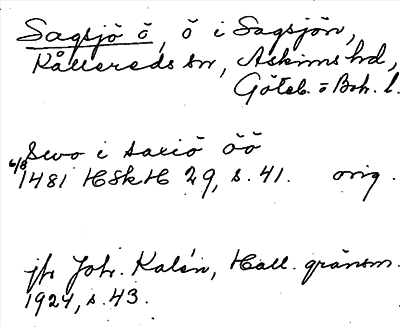 Sagsjö ö, ö i Sagsjön,
Kållereds sn, Askims hd,
Göteb. o Boh. l.
Sewo i saxiö öö
6/8 1481 HSkH 29, s. 41. orig.
jfr Joh. Kalén, Hall. gränsm.
1924, s. 43.